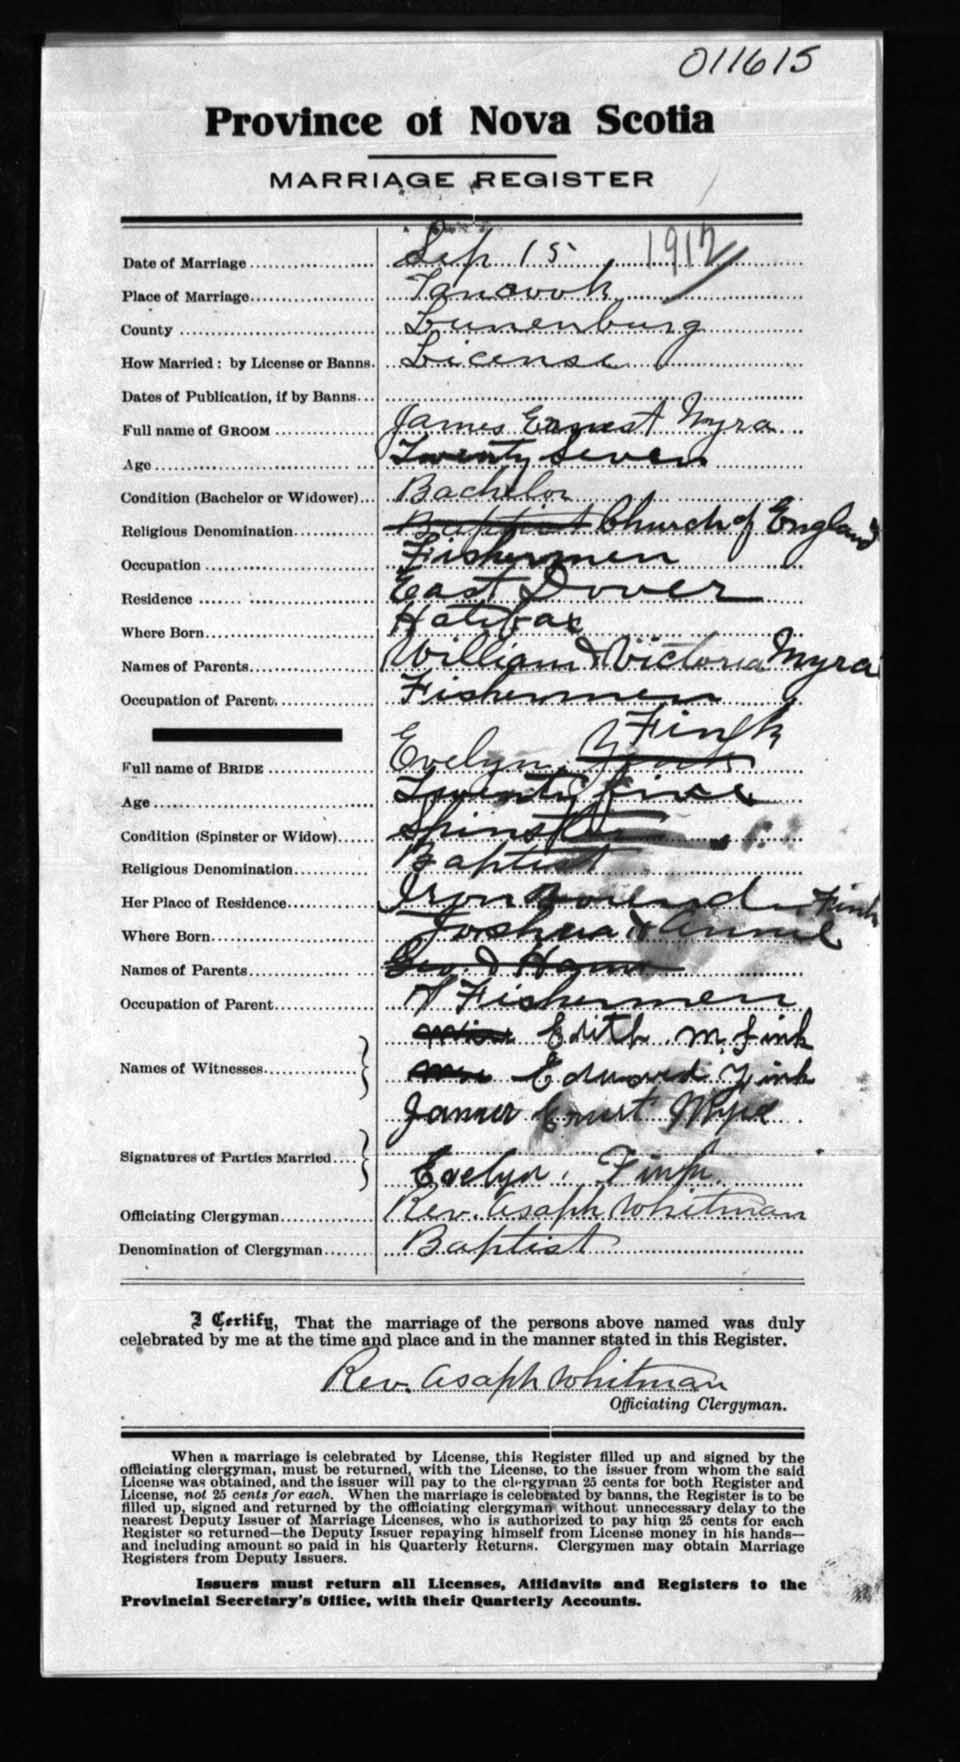 011615
Province of Nova Scotia
MARRIAGE REGISTER
Date of Marriage Sep 15 1917
Place of Marriage Tancook
County Lunenburg
How Married: by License or Banns. License
Dates of Publication, if by Banns
Full name of GROOM James Ernest Myra
Age Twenty Seven
Condition (Bachelor or Widower) Bachelor
Religious Denomination Baptist Church of England
Occupation Fishermen
Residence East Dover
Where Born Halifax
Names of Parents William & Victoria Myra
Occupation of Parent Fishermen
Full name of BRIDE Evelyn Fink
Age Twenty five
Condition (Spinster or Widow) Spinster
Religious Denomination Baptist
Her Place of Residence Iron Bound
Where Born Joshua & Annie Fink
Names of Parents Geo. &
Occupation of Parent Fishermen
Miss Edith M. Fink
Names of Witnesses Edward Fink
James Ernest
Signatures of Parties Married
Evelyn Fink
Officiating Clergyman Rev. Asaph Whitman
Denomination of Clergyman Baptist
I Certify, That the marriage of the persons above named was duly
celebrated by me at the time and place and in the manner stated in this Register.
Rev. Asaph Whitman
Officiating Clergyman.
When a marriage is celebrated by License, this Register filled up and signed by the
officiating clergyman, must be returned, with the License, to the issuer from whom the said
License was obtained, and the issuer will pay to the clergyman 25 cents for both Register and
License, not 25 cents for each. When the marriage is celebrated by banns, the Register is to be
filled up, signed and returned by the officiating clergyman without unnecessary delay to the
nearest Deputy Issuer of Marriage Licenses, who is authorized to pay him 25 cents for each
Register so returned—the Deputy Issuer repaying himself from License money in his hands—
and including amount so paid in his Quarterly Returns. Clergymen may obtain Marriage
Registers from Deputy Issuers.
Issuers must return all Licenses, Affidavits and Registers to the
Provincial Secretary's Office, with their Quarterly Accounts.